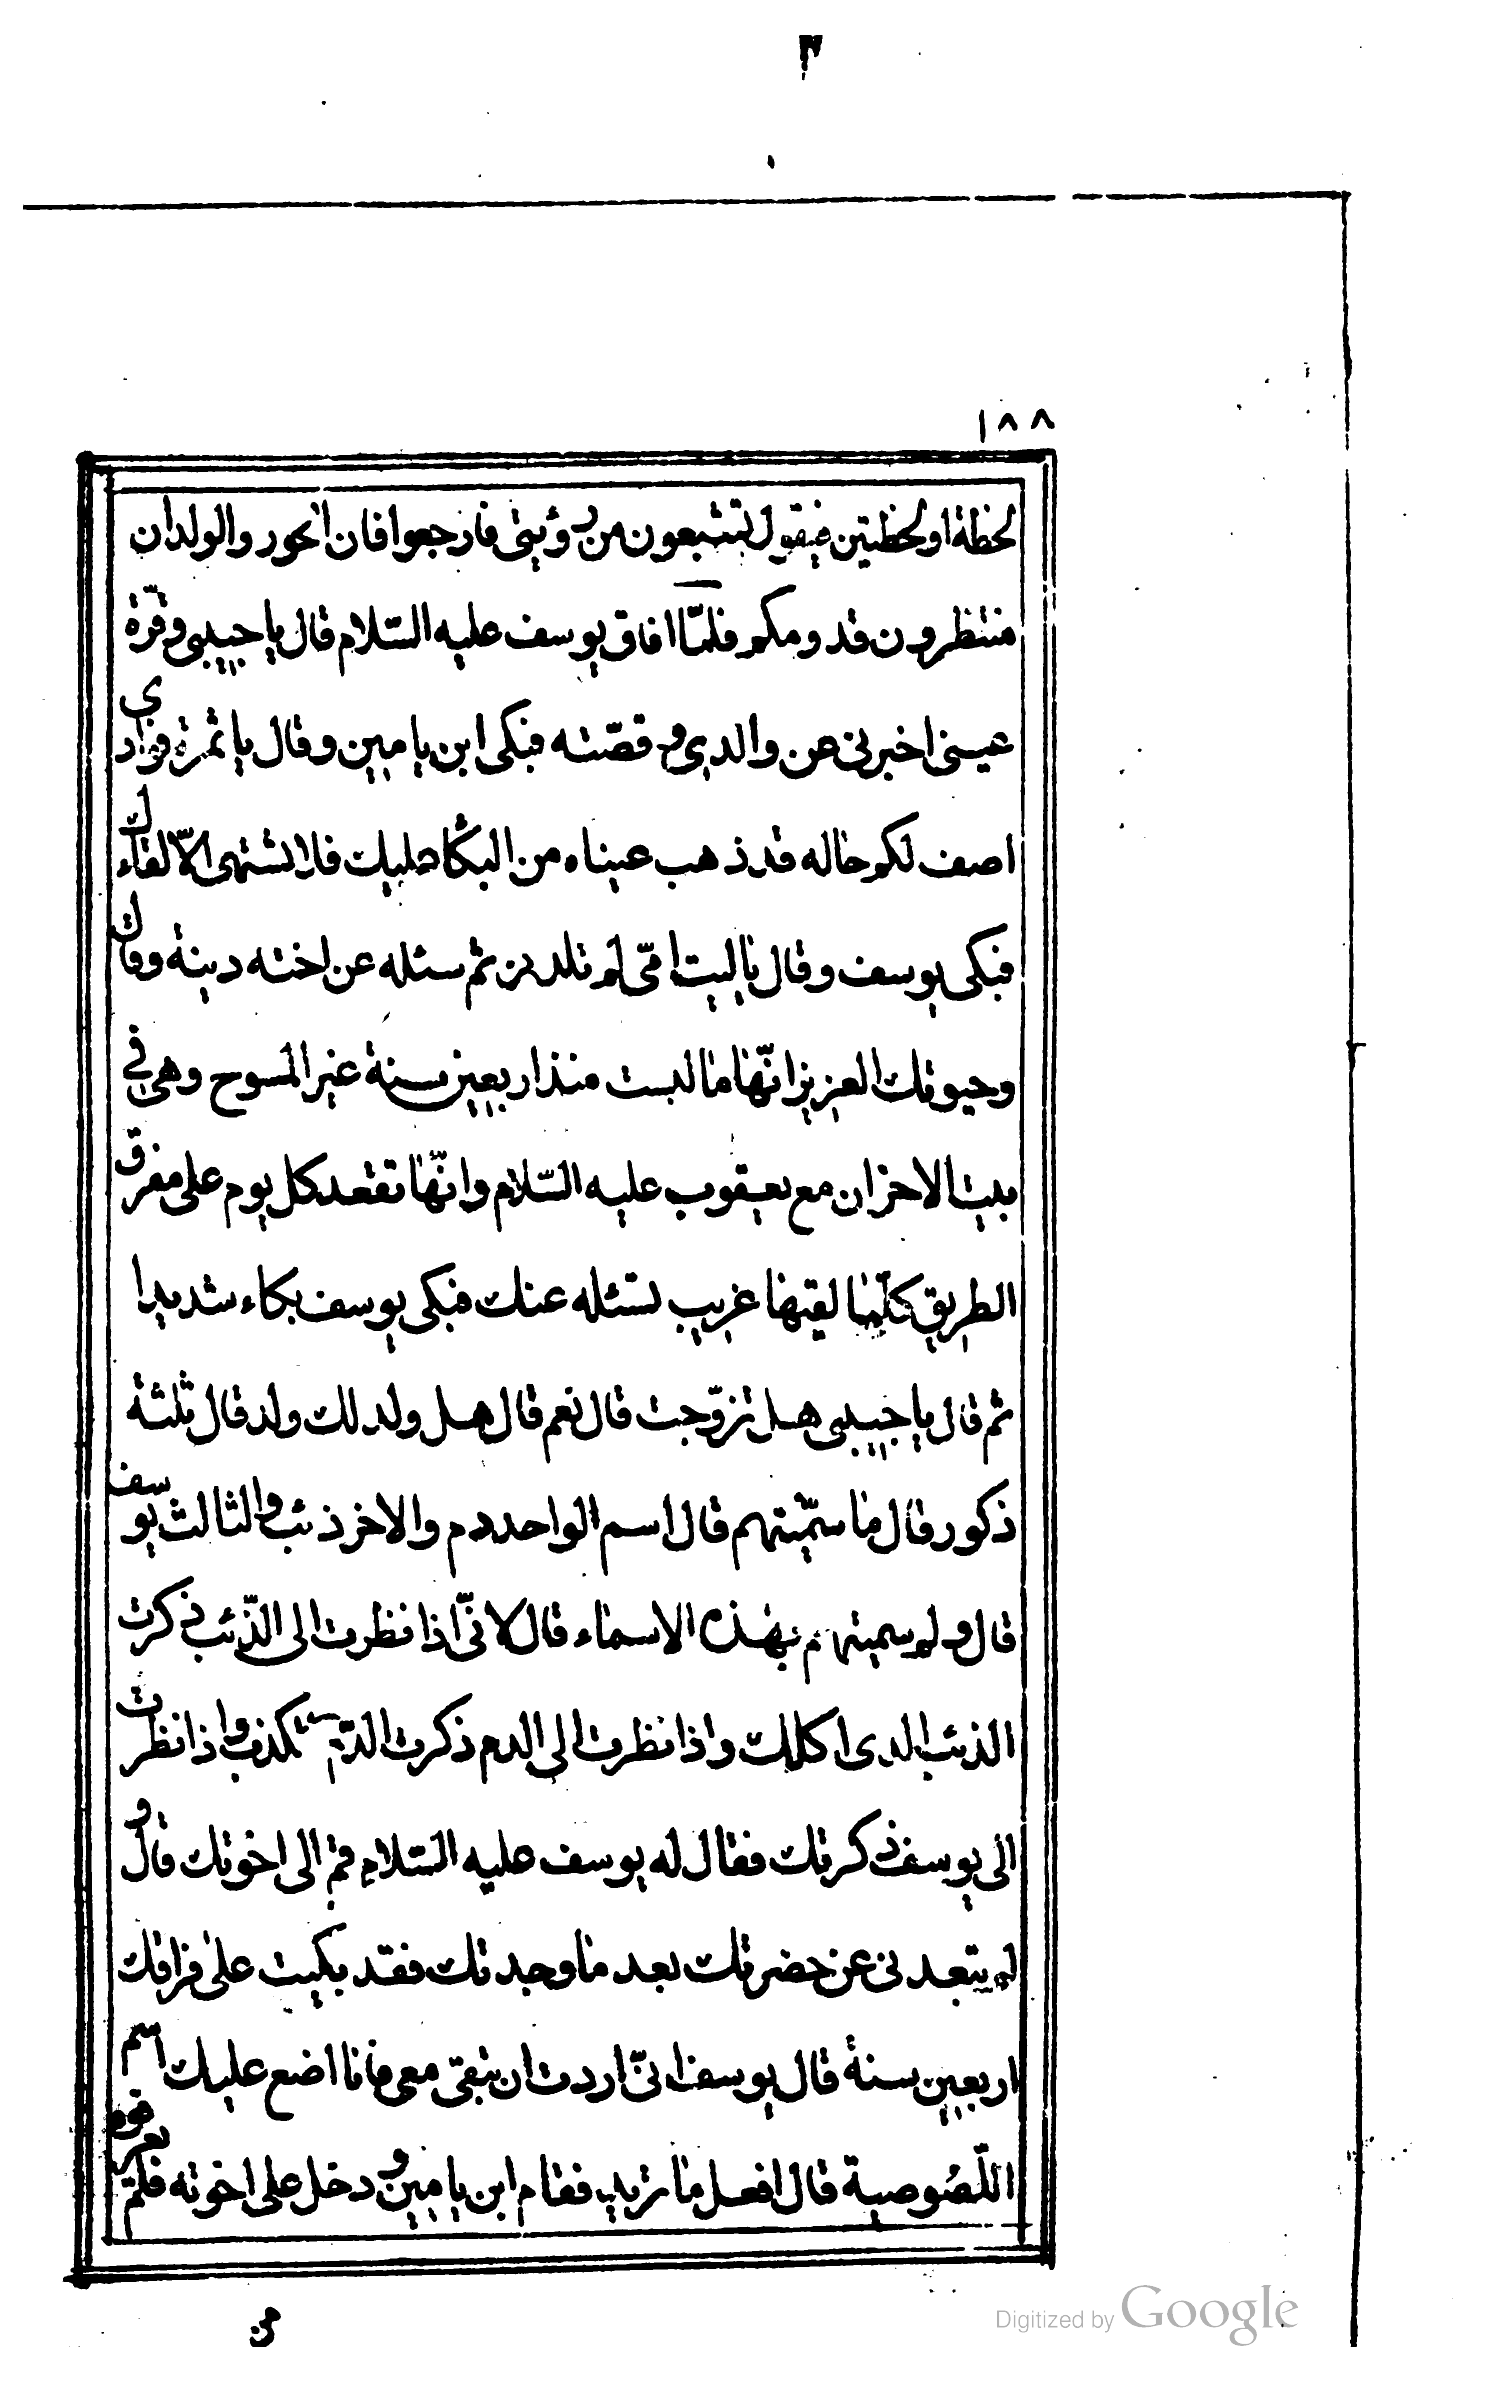 ١٨٨
لحظة او لحظتين فيقول لتشبعون من رؤيتى فارجعوا فان الحور والولدان
منتظرون قدومكم فلمّا افاق يوسف عليه السّلام قال يا حبيبى وقرّة
عينى اخبرنى عن والدى وقصّته فبكى ابن يامين وقال يا ثمرة فوادى
اصف لكم حاله قد ذهب عيناه من البكاء عليك فلا يشتهى الّا لقاءك
فبكى يوسف وقال ياليت امّى لم تلدنى ثم سئله عن اخته دينة وقال
وحيوتك العزيز انّها ما لبست منذ اربعين سنة غير المسوح وهى فى
بيت الاحزان مع يعقوب عليه السّلام وانّها تقعد كل يوم على مفرق
الطريق كلّما لقيها غريب تسئله عنك فبكى يوسف بكاء شديدا
ثم قال يا حبيبى هل تزوّجت قال نعم قال هل ولد لك ولد قال ثلثة
ذكور قال ما سمّيتهم قال اسم الواحد دم والاخر ذئب والثالث يوسف
قال ولم سميتهم بهذه الاسماء قال لانّى اذا نظرت الى الذّئب ذكرت
الذئب الذى اكلك واذا نظرت الى الدم ذكرت الدّم الكذب واذا نظرت
الى يوسف ذكرتك فقال له يوسف عليه السّلام قم الى اخوتك قال و
لم تبعدنى عن حضرتك بعد ما وجدتك فقد بكيت على فراقك
اربعين سنة قال يوسف انّى اردت ان تبقى معى فانا اضع عليك اسم
اللّصُوصية قال افعل ما تريد فقام ابن يامين ودخل على اخوته فلم يعرفوه
Digitized by Google